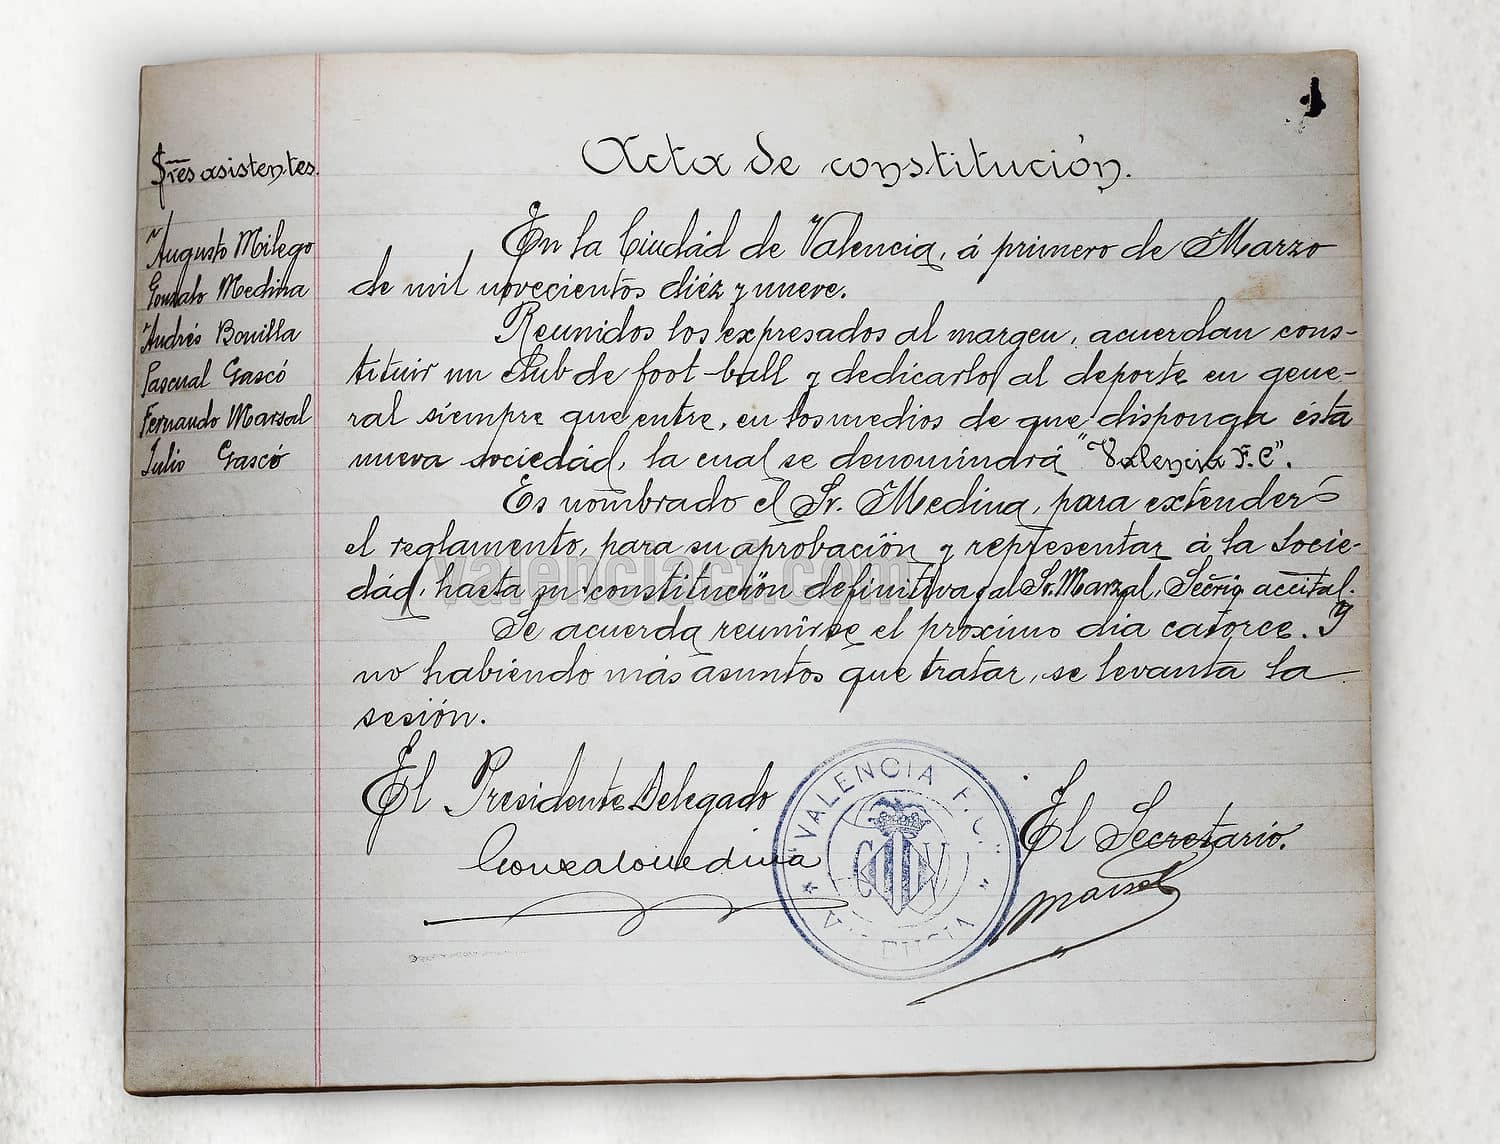 1
Acta de constitución.
Sres asistentes.
Augusto Milego
Gonzalo Medina
Andrés Bonilla
Pascual Gascó
Fernando Marsal
Julio Gascó
En la Ciudád de Valencia, á primero de Marzo
de mil novecientos diéz y nueve.
Reunidos los expresados al margen, acuerdan cons-
tituir un club de foot-ball y dedicarlo al deporte en gene-
ral siempre que entre, en los medios de que disponga ésta
nueva sociedád, la cual se denomindrá "Valencia F.C".
Es nombrado el Sr. Medina, para extender
el reglamento, para su aprobación y representar á la Socie-
dád, hasta su constitución definitiva, al Sr. Marzal, Secrio accital.
Se acuerda reunirse el próximo dia catorce. Y
no habiendo más asuntos que tratar, se levanta la
sesión.
El Presidente Delegado
Gonzalo Medina
El Secretario.
Marsal
"VALENCIA F.C."
VALENCIA
valenciacf.com